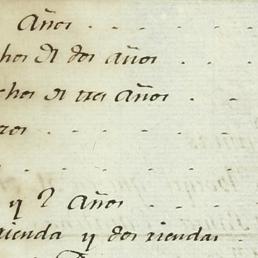 Años
chos de dos años
chos de tres años
ros
y 2 Años
rienda y dos riendas